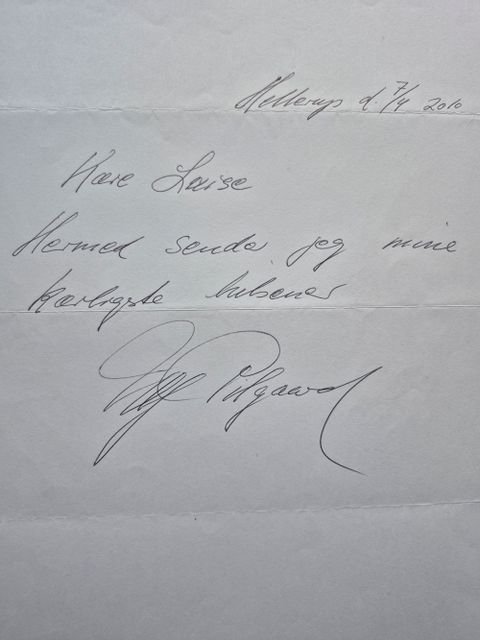 Hellerup d. 7/4 2010
Kære Louise
Hermed sender jeg mine
kærligste hilsener
Ulf Pilgaard